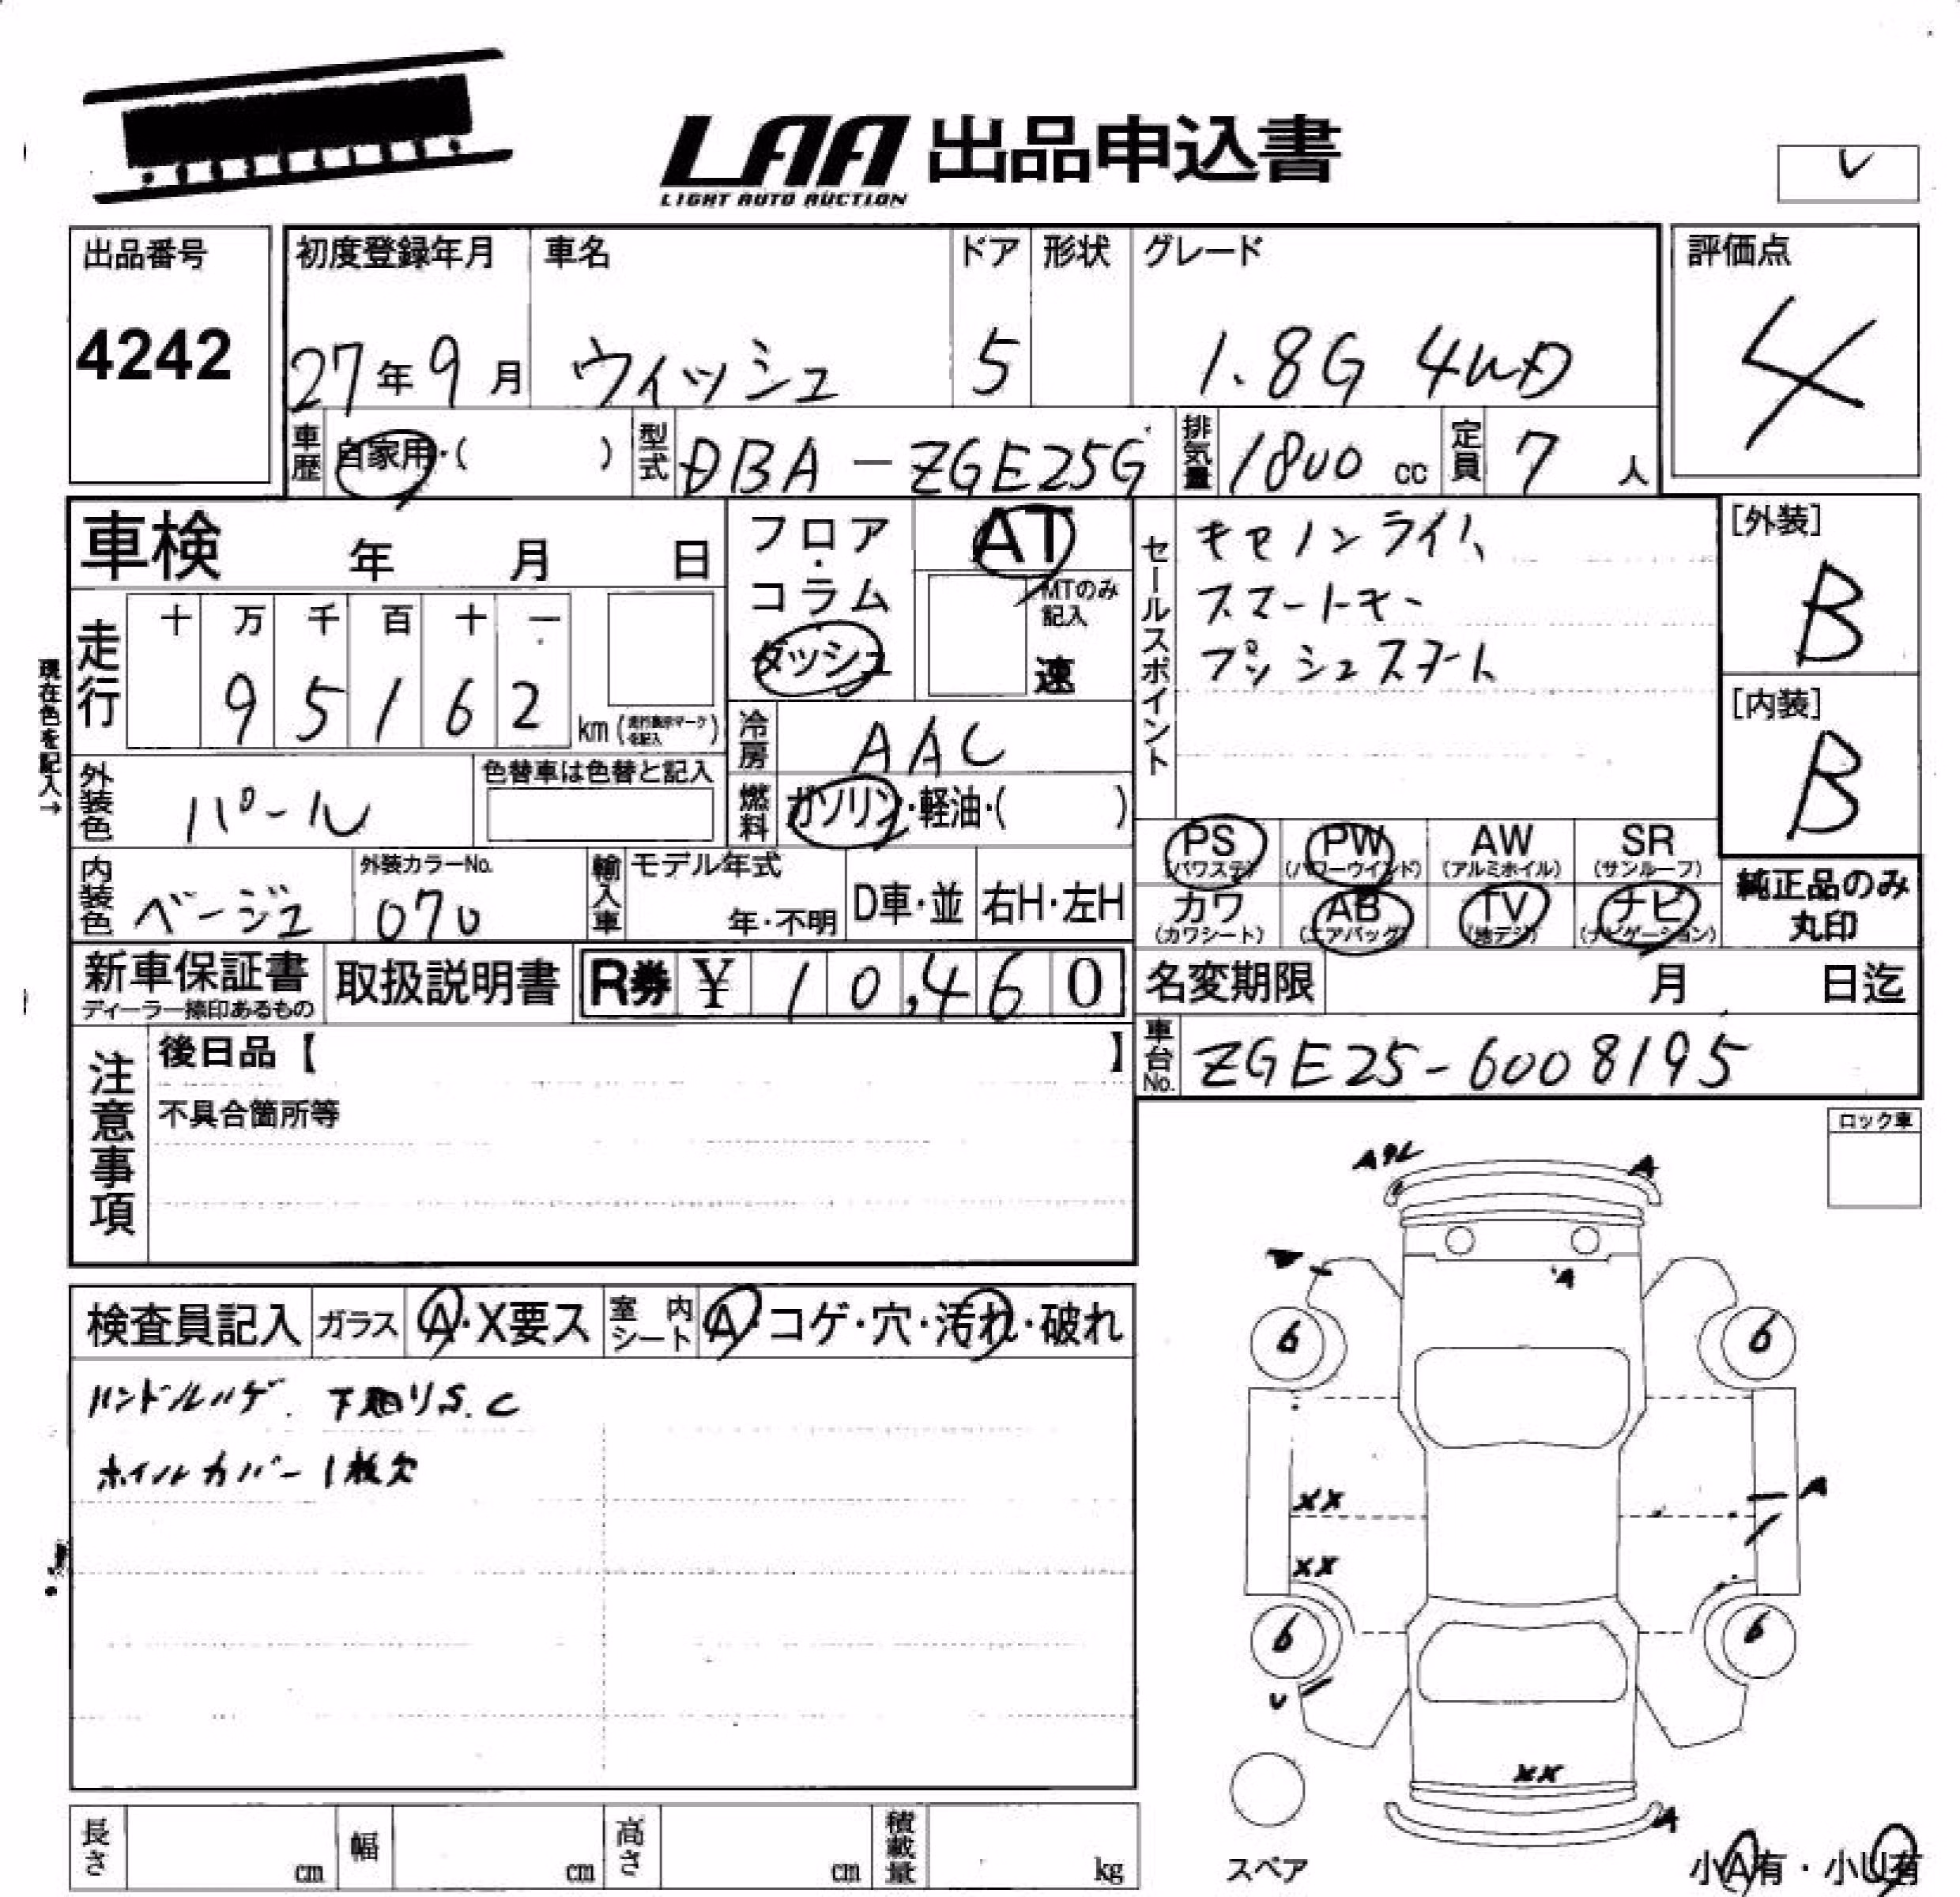 LAA 出品申込書
LIGHT AUTO AUCTION
出品番号
4242
初度登録年月
27年9月
車名
ウィッシュ
ドア
5
形状
グレード
1.8G 4WD
評価点
4
車歴
自家用・( )
型式
DBA-ZGE25G
排気量
1800 cc
定員
7 人
車検 年 月 日
フロア・コラム
ダッシュ
AT
MTのみ記入
速
セールスポイント
キセノンライト
スマートキー
プッシュスタート
[外装]
B
[内装]
B
現在色を記入→
走行
十 万 千 百 十 一
9 5 1 6 2
km
冷房
AAC
外装色
パール
色替車は色替と記入
燃料
ガソリン・軽油・( )
PS
(パワステ)
PW
(パワーウインド)
AW
(アルミホイル)
SR
(サンルーフ)
カワ
(カワシート)
AB
(エアバッグ)
TV
(地デジ)
ナビ
(ナビゲーション)
純正品のみ
丸印
内装色
ベージュ
外装カラーNo.
070
輸入車
モデル年式
年・不明
D車・並
右H・左H
新車保証書
ディーラー捺印あるもの
取扱説明書
R券 ¥ 10,460
名変期限 月 日迄
車台No.
ZGE25-6008195
注意事項
後日品【 】
不具合箇所等
ロック車
検査員記入
ガラス
A・X要ス
室内シート
A・コゲ・穴・汚れ・破れ
ハンドルハゲ. 下廻りS.C
ホイルカバー1枚欠
A
A
6
6
XX
A
XX
6
6
U
XX
A
スペア
小A有・小U有
長さ cm
幅 cm
高さ cm
積載量 kg